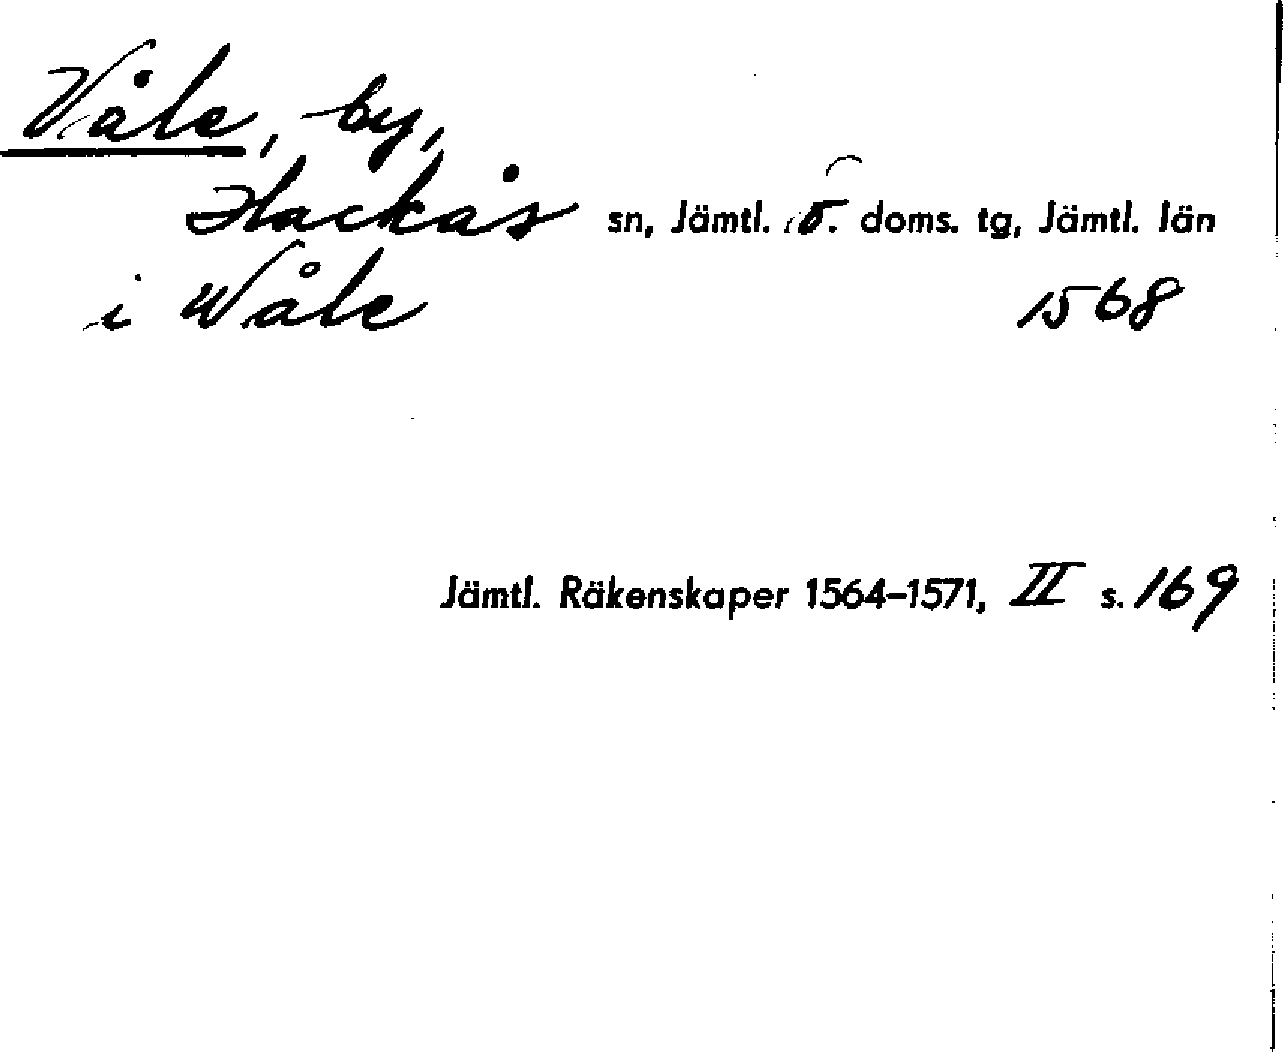 Våle, by,
Hackås sn, Jämtl. ö. doms. tg, Jämtl. län
i Wåle 1568
Jämtl. Räkenskaper 1564–1571, II s. 169